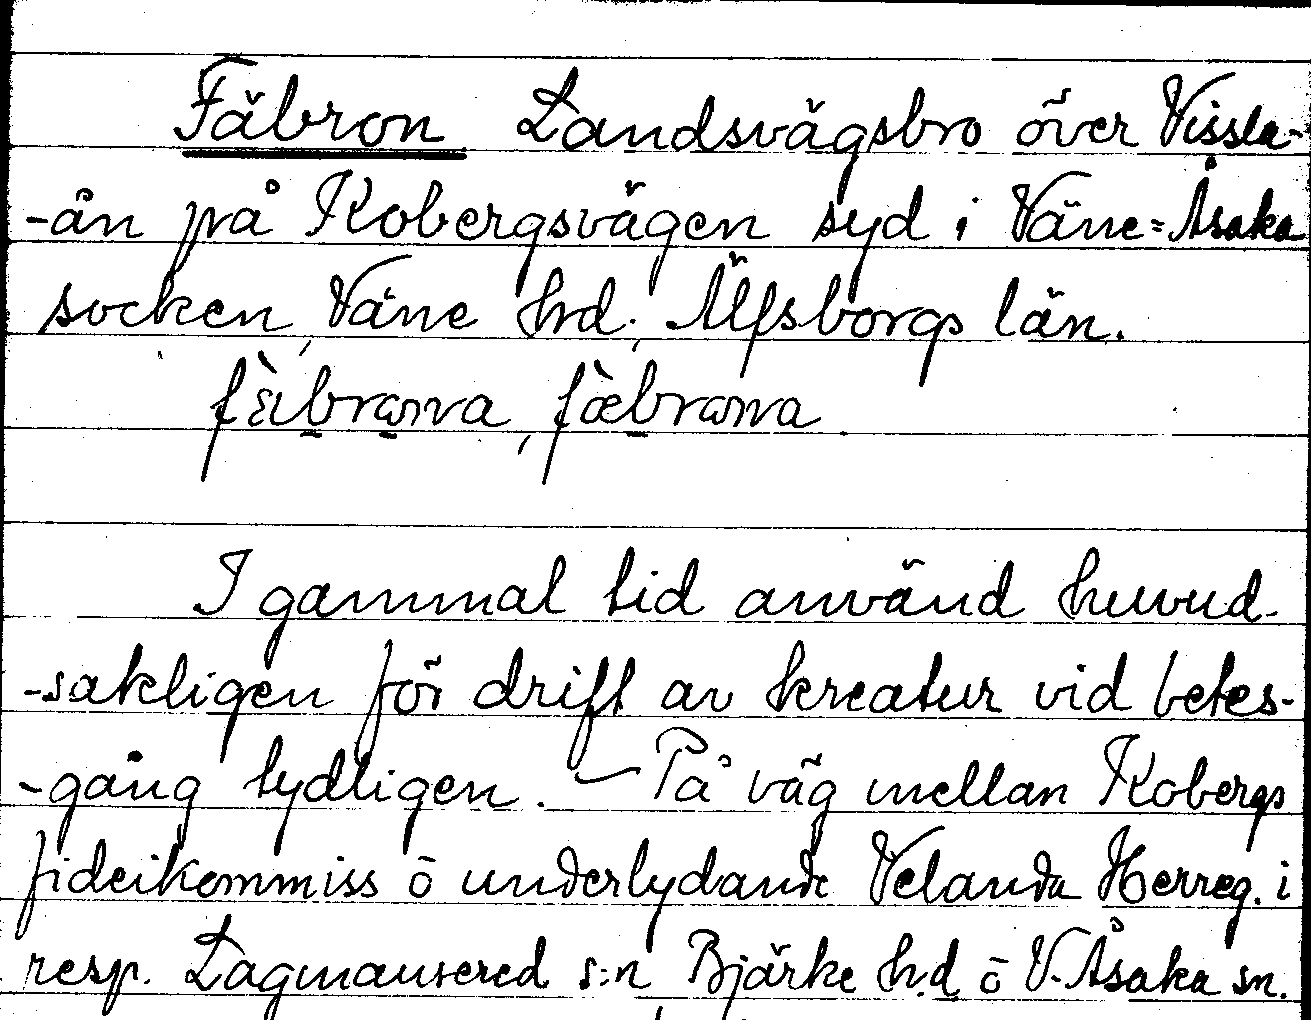 Fäbron Landsvägsbro över Vissla-
-ån på Kobergsvägen syd i Väne=Åsaka
socken, Väne hrd., Älfsborgs län.
fæ̀brωna, fæ̀brωna.
I gammal tid använd huvud-
-sakligen för drift av kreatur vid betes-
-gång tydligen. — På väg mellan Kobergs
fideikommiss ō underlydande Velanda Herreg. i
resp. Lagmansered s:n, Bjärke h.d. ō V.Åsaka sn.